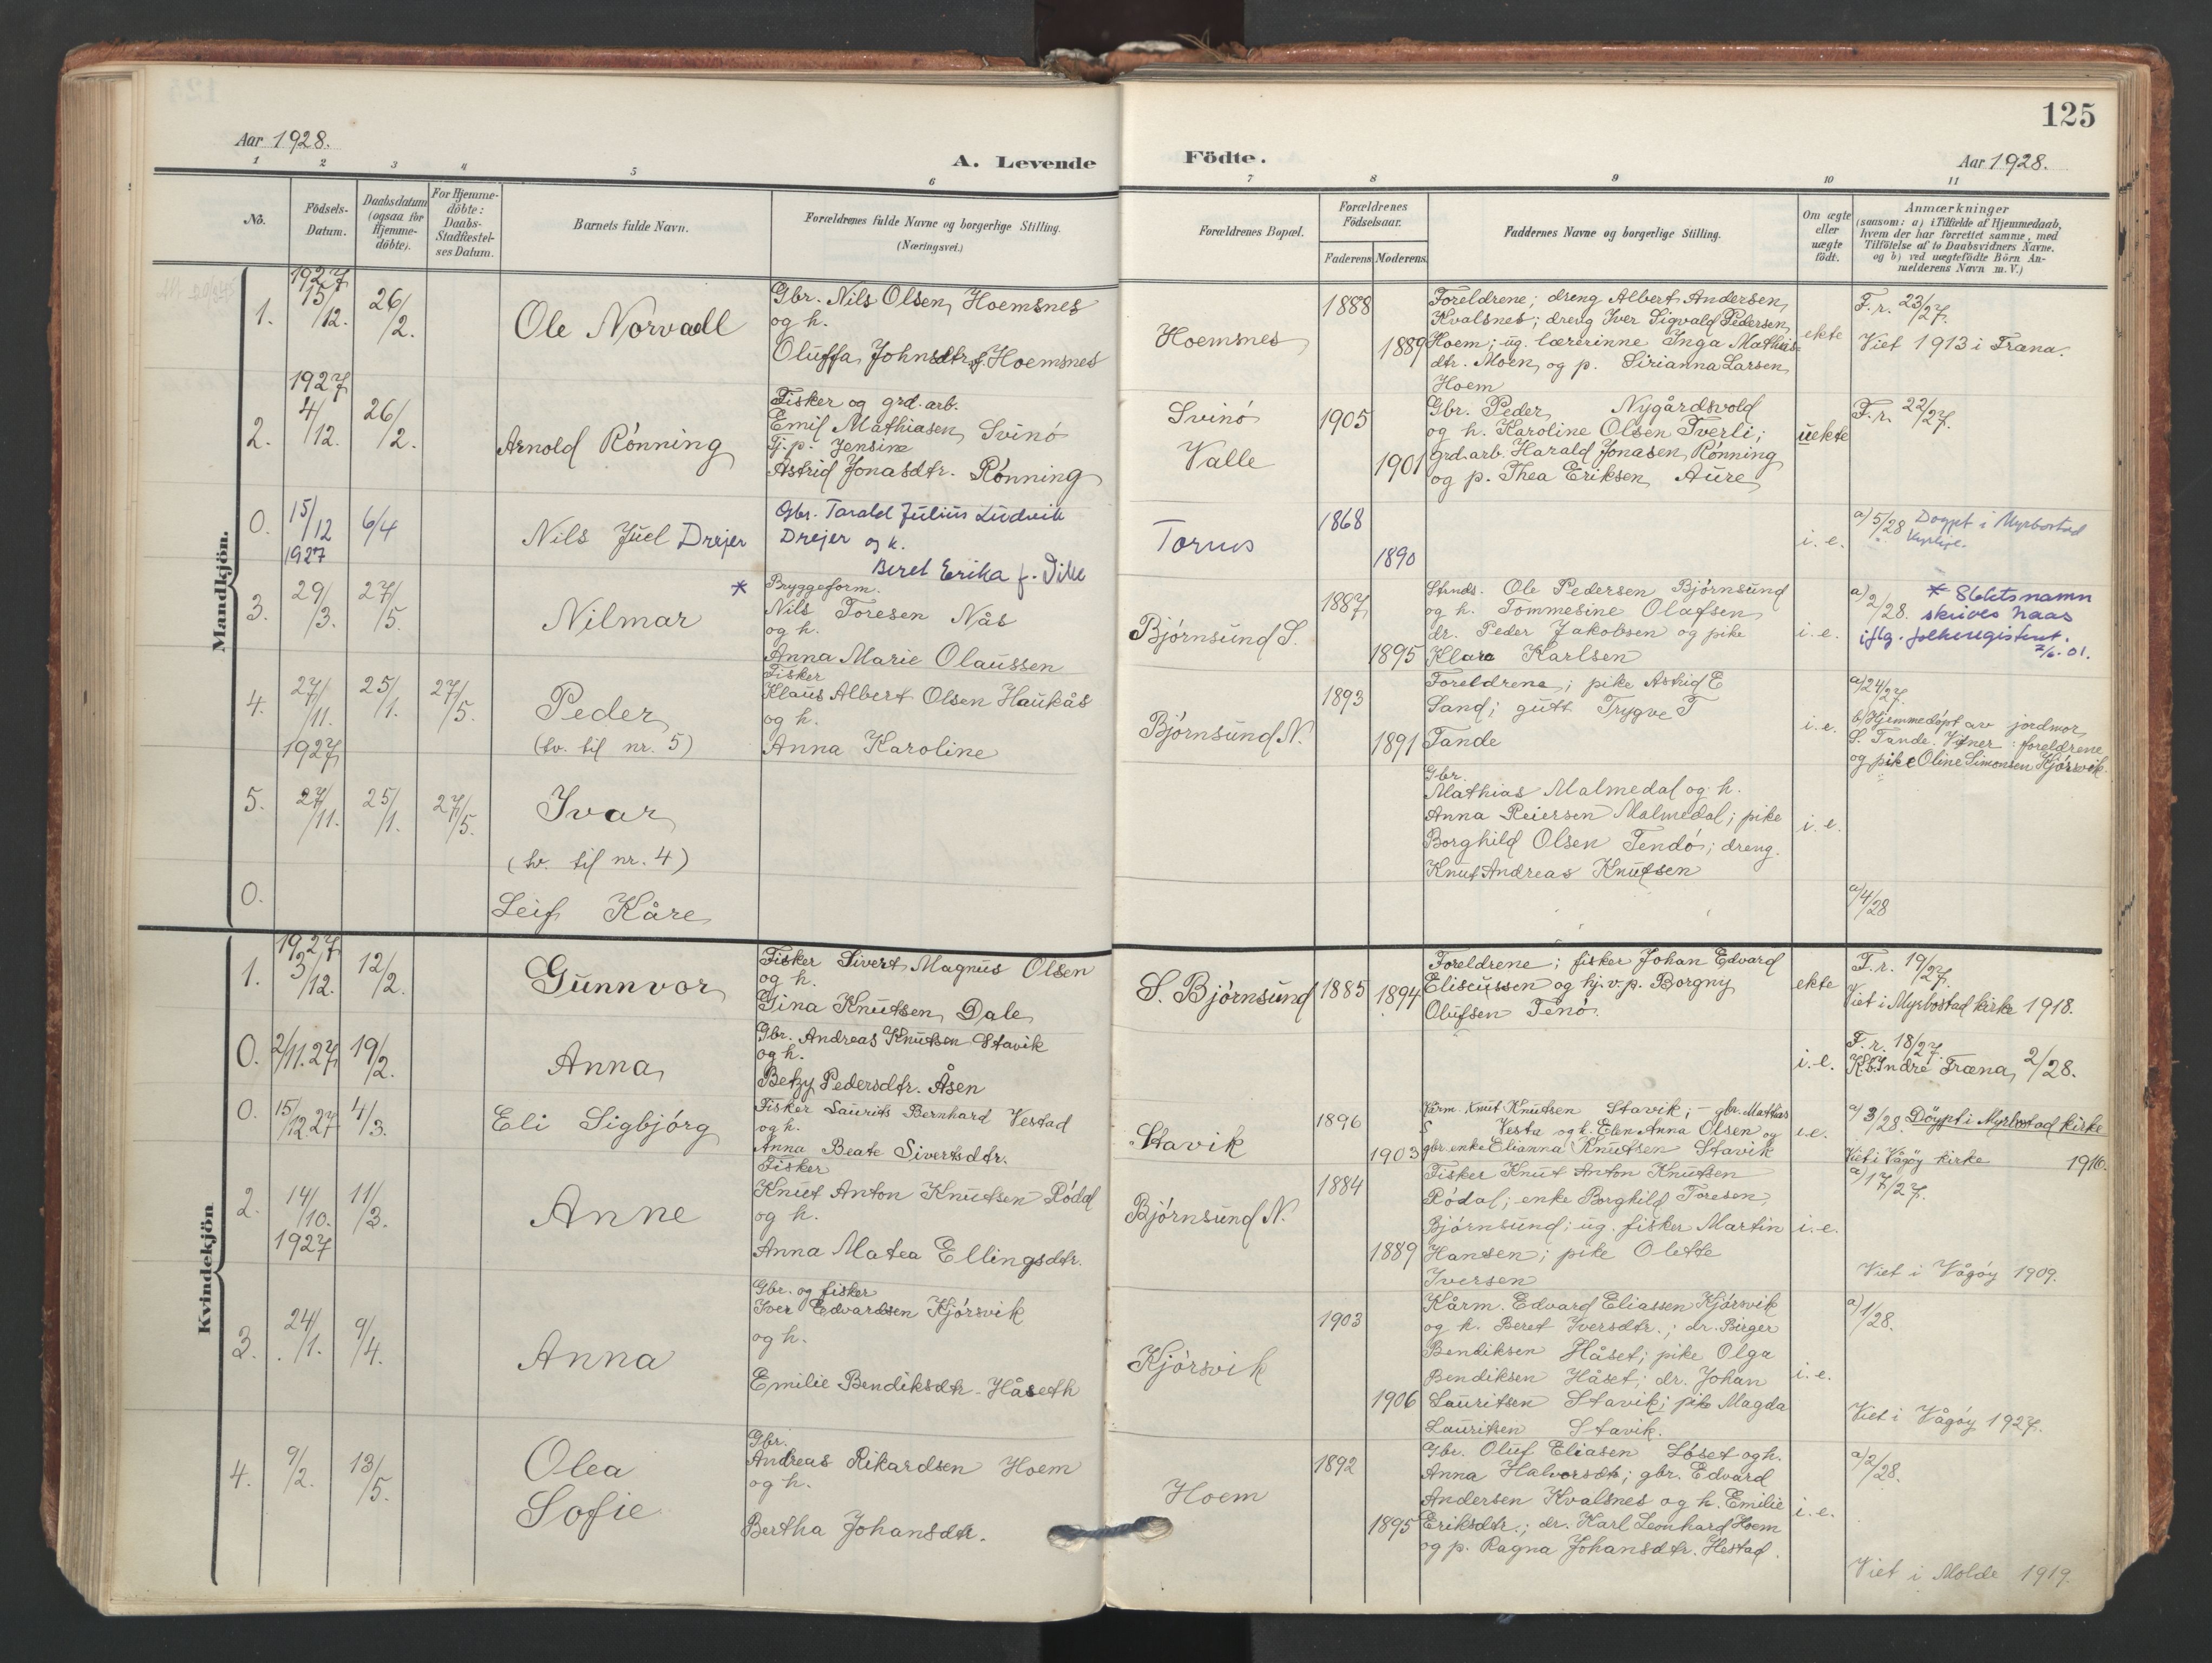 125
Aar 1928.
A. Levende Födte.
Aar 1928.
1 2 3 4 5 6 7 8 9 10 11
No.
Födsels-
Datum.
Daabsdatum
(ogsaa for
Hjemme-
döbte).
For Hjemme-
döbte:
Daabs-
Stadfæstel-
ses Datum.
Barnets fulde Navn.
Forældrenes fulde Navne og borgerlige Stilling.
(Næringsvei.)
Forældrenes Bopæl.
Forældrenes
Födselsaar.
Faderens Moderens
Faddernes Navne og borgerlige Stilling.
Om ægte
eller
uægte
födt.
Anmærkninger
(saasom: a) i Tilfælde af Hjemmedaab,
hvem der har forrettet samme, med
Tilföielse af to Daabsvidners Navne,
og b) ved uægtefödte Börn An-
melderens Navn m. V.)
Mandkjön.
1.
1927
15/12.
26/2.
Ole Norvald
Gbr. Nils Olsen Hoemsnes
og h.
Oluffa Johnsdtr. f. Hoemsnes
Hoemsnes
1888
1889
Foreldrene; dreng Albert Andersen
Kvalsnes; dreng Iver Sigvald Pedersen
Hoem; ug. lærerinne Inga Mathis-
dtr. Moen og p. Sirianna Larsen
Hoem
ekte
F. r. 23/27.
Viet 1913 i Fræna.
2.
1927
4/12.
26/2.
Arnold Rønning
Fisker og grd. arb.
Emil Mathiasen Svinø
Tj. p. Jensine
Astrid Jonasdtr. Rønning
Svinø
Valle
1905
1901
Gbr. Peder Nygårdsvold
og h. Karoline Olsen Tverli;
grd. arb. Harald Jonasen Rønning
og p. Thea Eriksen Aure
uekte
F. r. 22/27.
0.
15/12
1927
6/4
Nils Juel Drejer
Gbr. Tarald Julius Ludvik
Drejer og k.
Beret Erika f. Vike
Tornes
1868
1890
i. e.
a) 5/28 Døypt i Myrbostad
Kyrkje.
3.
29/3.
27/5.
Nilmar
*
Bryggeform.
Nils Toresen Nås
og h.
Anna Marie Olaussen
Bjørnsund S.
1887
1895
Ole Pedersen Bjørnsund
og h. Tommesine Olafsen
dr. Peder Jakobsen og pike
Klara Karlsen
i. e.
a) 2/28.
* Slektsnamn
skrives Naas
iflg. folkeregisteret.
2/6-01.
4.
27/11.
1927
25/1.
27/5.
Peder
(tv. til nr. 5)
Fisker
Klaus Albert Olsen Haukås
og h.
Anna Karoline
Bjørnsund N.
1893
1891
Foreldrene; pike Astrid E
Sand; gutt Trygve T
Tande
i. e.
a) 24/27.
b) Hjemmedøpt av jordmor
S. Tande. Vitner: foreldrene
og pike Oline Simonsen Kjørsvik.
5.
27/11.
25/1.
27/5.
Ivar
(tv. til nr. 4)
Gbr.
Mathias Malmedal og h.
Anna Reiersen Malmedal; pike
Borghild Olsen Tendø; dreng.
Knut Andreas Knutsen
i. e.
0.
Leif Kåre
a) 4/28
Kvindekjön
1.
1927
3/12.
12/2.
Gunnvor
Fisker Sivert Magnus Olsen
og h.
Gina Knutsen Dale
S. Bjørnsund
1885
1894
Foreldrene; fisker Johan Edvard
Eliseussen og hj. v. p. Borgny
Olufsen Tenø.
ekte
F. r. 19/27.
Viet i Myrbostad kirke 1918.
0.
2/11.27
19/2.
Anna
Gbr. Andreas Knutsen Stavik
og h.
Betzy Pedersdtr. Åsen
i. e.
F. r. 18/27.
Kb. Indre Fræna, 2/28.
0.
15/12.27
4/3.
Eli Sigbjørg
Fisker Laurits Bernhard Vestad
og h.
Anna Beate Sivertsdtr.
Stavik
1896
1903
Kårm. Knut Knutsen Stavik; gbr. Mathias
Vestad og h. Elen Anna Olsen og
gbr. enke Elianna Knutsen Stavik
i. e.
a) 3/28. Döypt i Myrbostad kirke
Viet i Vågøy kirke 1916.
2.
14/10.
1927
11/3.
Anne
Fisker
Knut Anton Knutsen Rødal
og h.
Anna Matea Ellingsdtr.
Bjørnsund N.
1884
1889
Fisker Knut Anton Knutsen
Rødal; enke Borghild Toresen
Bjørnsund; ug. fisker Martin
Hansen; pike Olette
Iversen
i. e.
a) 17/27.
Viet i Vågøy 1909.
3.
24/1.
9/4.
Anna
Gbr. og fisker
Iver Edvardsen Kjørsvik
og h.
Emilie Bendiksdtr. Håseth
Kjørsvik
1903
1906
Kårm. Edvard Eliassen Kjørsvik
og h. Beret Iversdtr.; dr. Birger
Bendiksen Håset; pike Olga
Bendiksen Håset; dr. Johan
Lauritsen Stavik; pike Magda
Lauritsen Stavik.
i. e.
a) 1/28.
Viet i Vågøy 1927.
4.
9/2.
13/5.
Olea
Sofie
Gbr.
Andreas Rikardsen Hoem
og h.
Bertha Johansdtr.
Hoem
1892
1895
Gbr. Oluf Eliasen Løset og h.
Anna Halvorsdtr; gbr. Edvard
Andersen Kvalsnes og h. Emilie
Eriksdtr.; dr. Karl Leonhard Hoem
og p. Ragna Johansdtr. Hestad.
i. e.
a) 2/28.
Viet i Molde 1919.